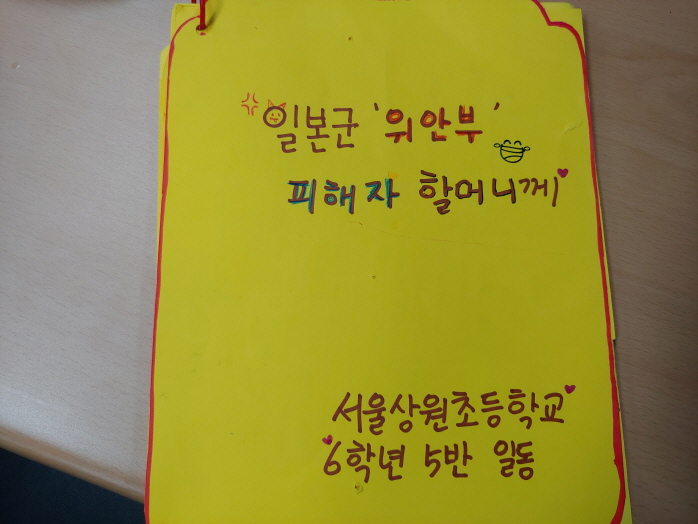 일본군 '위안부'
피해자 할머니께
서울상원초등학교
6학년 5반 일동